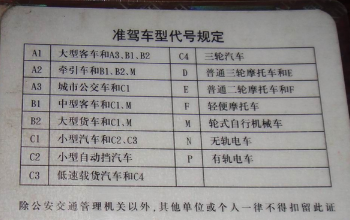 准驾车型代号规定
A1 大型客车和A3、B1、B2 C4 三轮汽车
A2 牵引车和B1、B2、M D 普通三轮摩托车和E
A3 城市公交车和C1 E 普通二轮摩托车和F
B1 中型客车和C1、M F 轻便摩托车
B2 大型货车和C1、M M 轮式自行机械车
C1 小型汽车和C2、C3 N 无轨电车
C2 小型自动挡汽车 P 有轨电车
C3 低速载货汽车和C4
除公安交通管理机关以外,其他单位或个人一律不得扣留此证